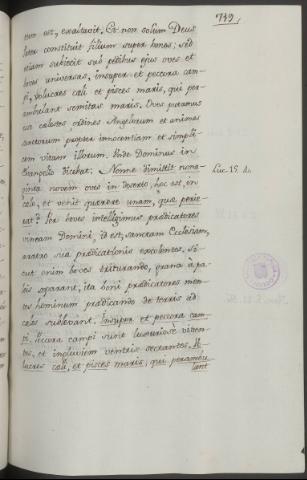 719.
tum est, exaltavit. Et non solum Deus
Pater constituit filium super homines; sed
etiam subiecit sub pedibus ejus oves et
boves universas, insuper et peccora cam-
pi, volucres cæli et pisces maris, qui per-
ambulant semitas maris. Oves ponamus
esse cælestes ordines Angelorum et animas
sanctorum propter innocentiam et simpli-
cem vitam illorum. Unde Dominus in
Evangelio dicebat: Nonne dimittit nona-
ginta novem oves in deserto, hoc est, in
cælo, et venit quærere unam, quæ perie-
rat? Per boves intelligimus prædicatores
vineam Domini, id est, sanctam Ecclesiam,
aratro suæ prædicationis excolentes. Si-
cut enim boves triturando, grana à pa-
leis separant, ita boni prædicatores men-
tes hominum prædicando de terris ad
cælos sublevant. Insuper et peccora cam-
pi. Peccora campi sunt luxuriosè viven-
tes, et ingluviem ventris sectantes. Vo-
lucres cæli, et pisces maris, qui perambu-
lant
Luc. 15. 4.